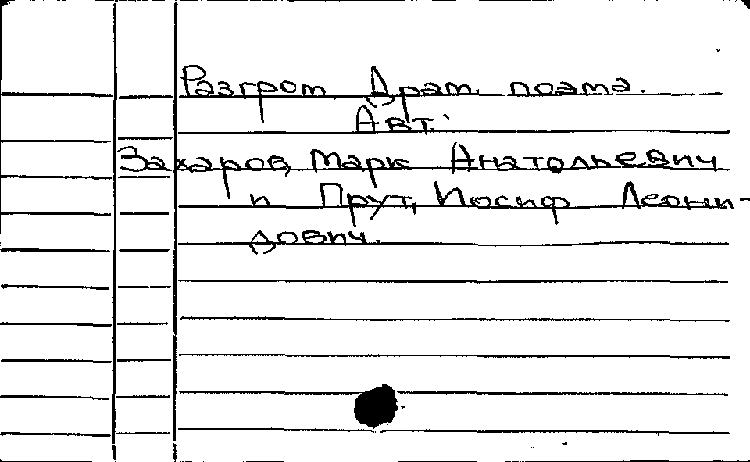 Разгром. Драм. поэма.
Авт.:
Захаров, Марк Анатольевич
и Прут, Иосиф Леони-
дович.